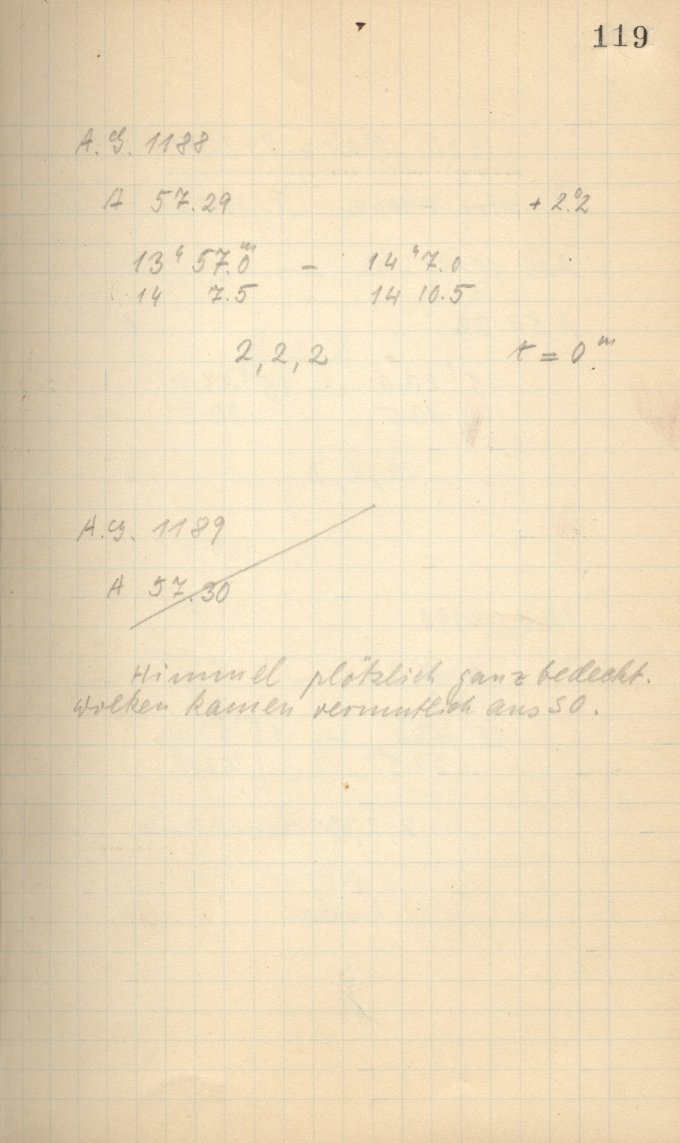 119
A.G. 1188
A 57.29 + 2.°2
13ʰ 57.ᵐ0 - 14ʰ 7.0
14 7.5 14 10.5
2, 2, 2 t = 0.ᵐ
A.G. 1189
A 57.30
Himmel plötzlich ganz bedeckt.
Wolken kamen vermutlich aus SO.